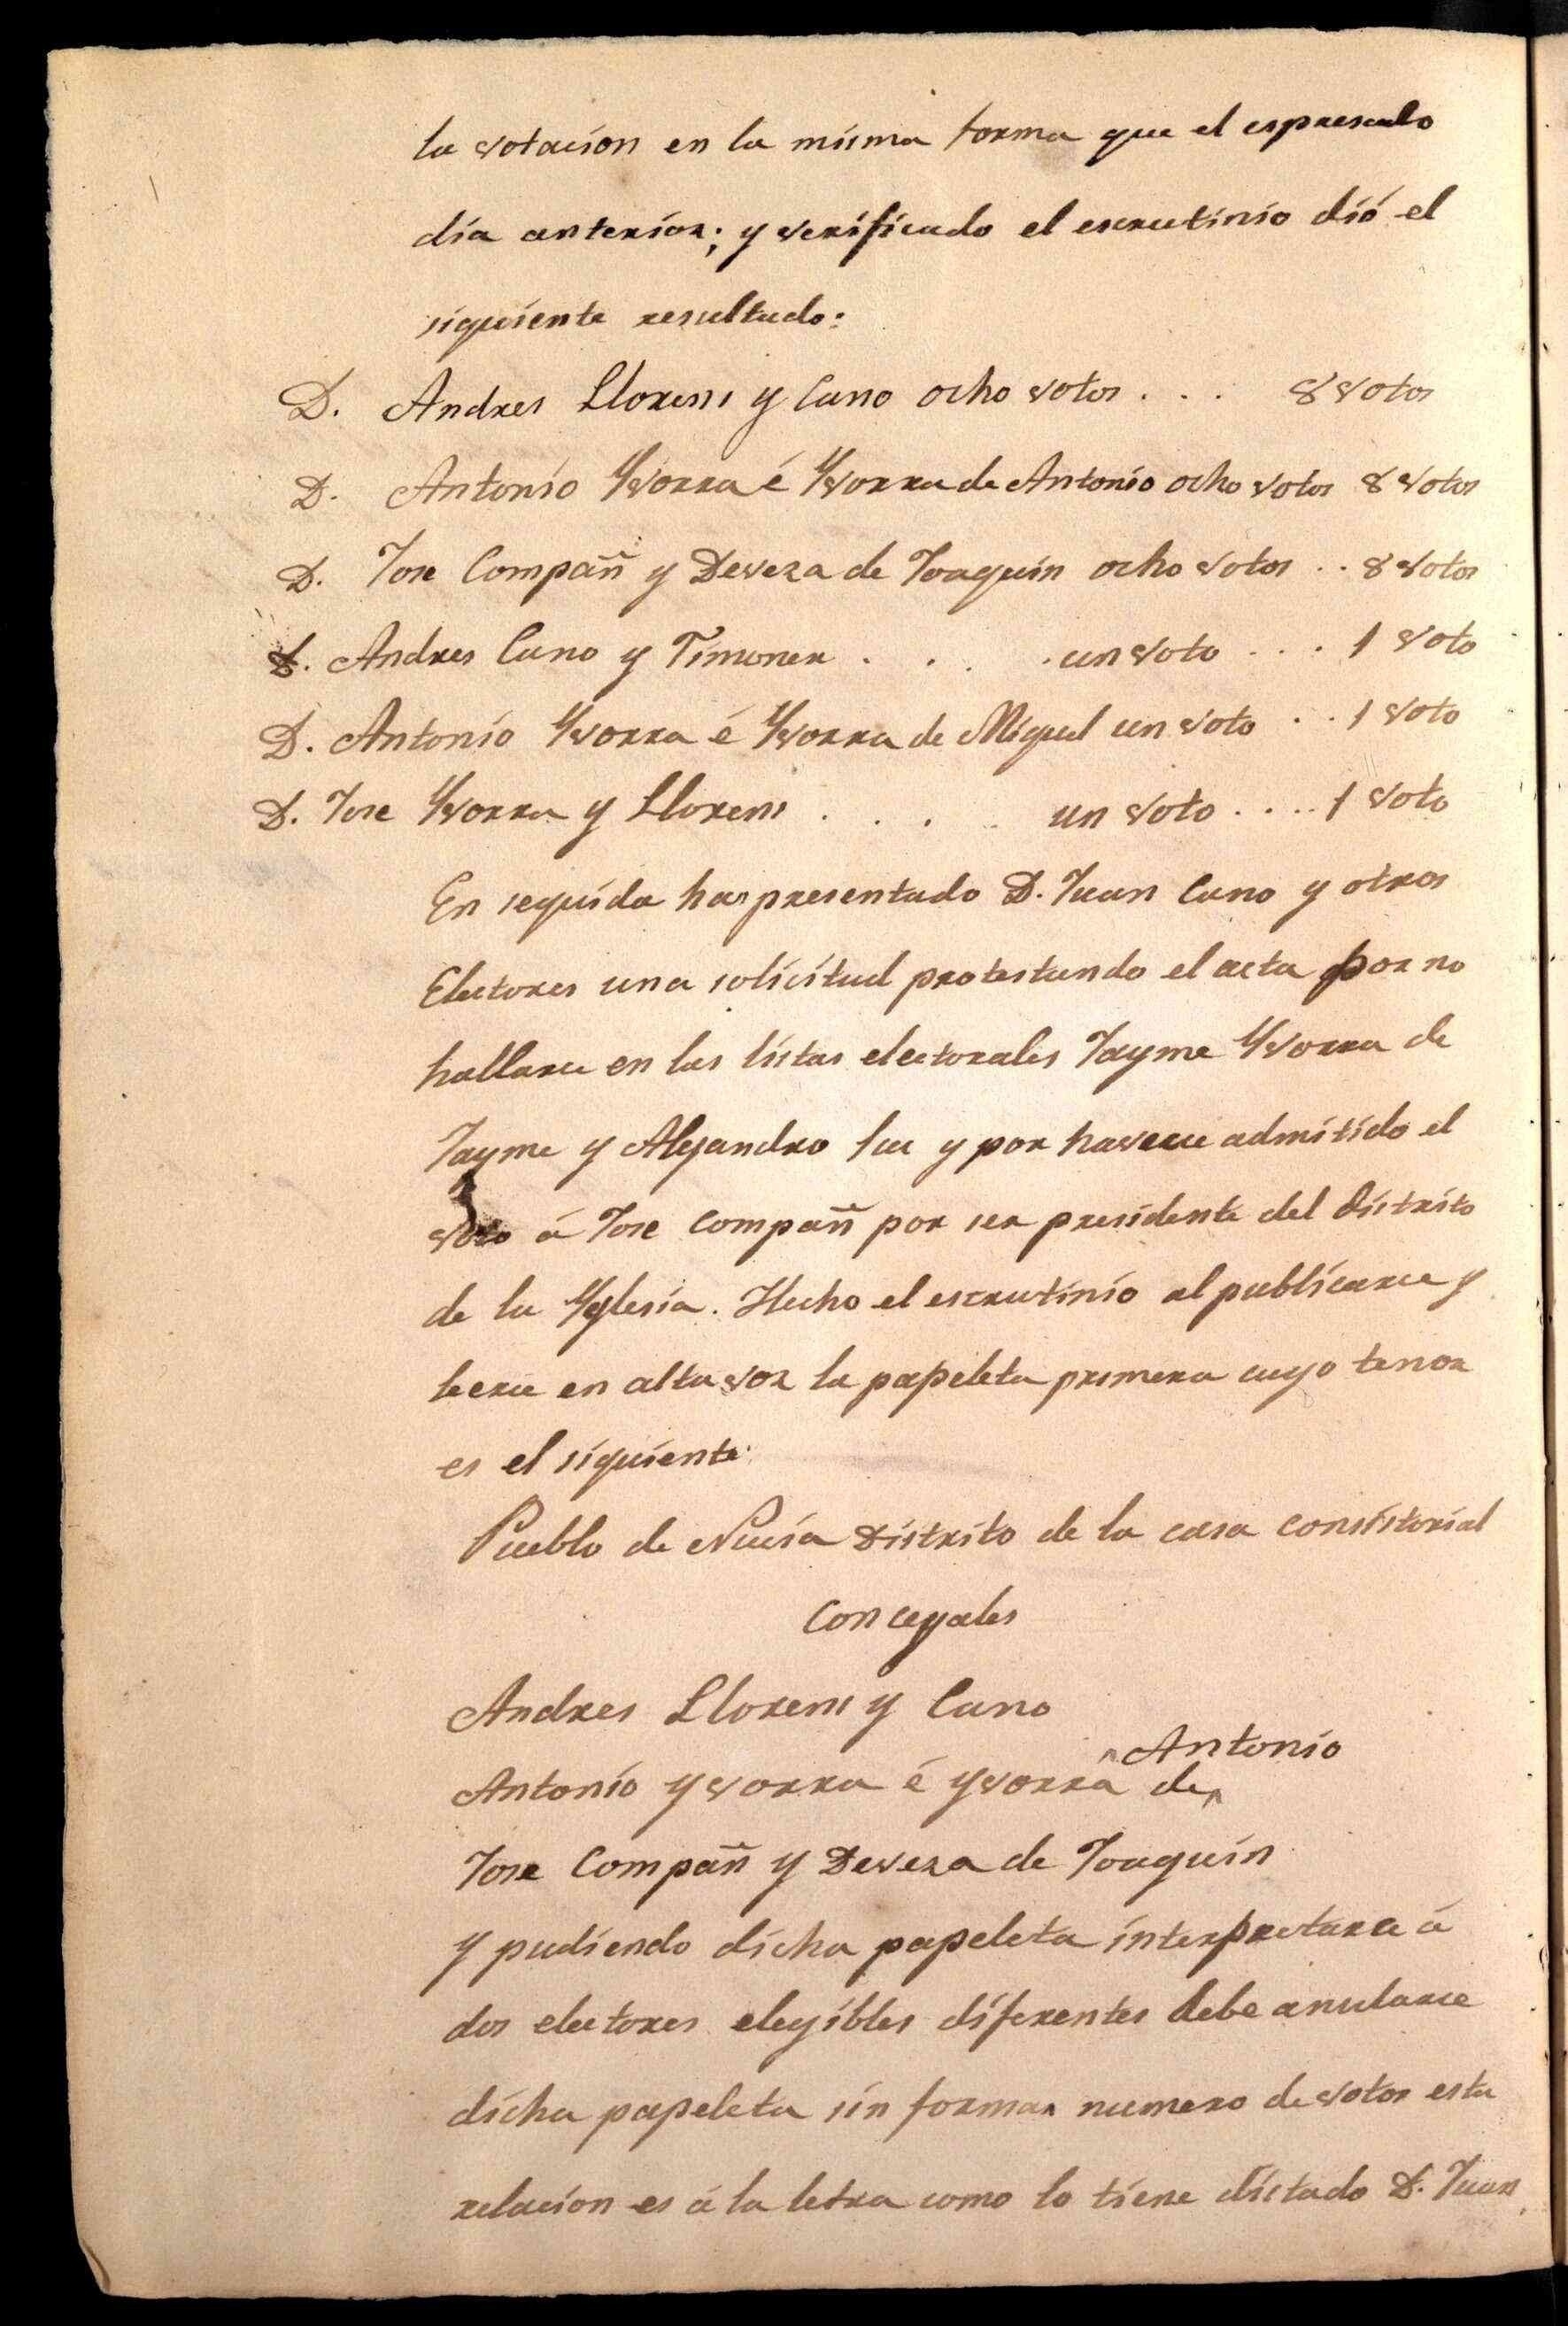 la votacion en la misma forma que el espresado
dia anterior; y verificado el escrutinio dió el
siguiente resultado:
D. Andres Llorens y Cano ocho votos . . . 8 votos
D. Antonio Yvorra é Yvorra de Antonio ocho votos 8 votos
D. Jose Compañ y Devesa de Joaquin ocho votos . . 8 votos
D. Andres Cano y Timoner . . . . un voto . . . 1 voto
D. Antonio Yvorra é Yvorra de Miguel un voto . . 1 voto
D. Jose Yvorra y Llorens . . . . un voto . . . . 1 voto
En seguida han presentado D. Juan Cano y otros
Electores una solicitud protestando el acta por no
hallarse en las listas electorales Jayme Yvorra de
Jayme y Alejandro y por haverse admitido el
voto á Jose Compañ por ser presidente del Distrito
de la Yglesia. Hecho el escrutinio al publicarse y
leerse en alta voz la papeleta primera cuyo tenor
es el siguiente
Pueblo de Nucia Distrito de la casa consistorial
Concejales
Andres Llorens y Cano
Antonio yvorra é yvorra de Antonio
Jose Compañ y Devesa de Joaquin
y pudiendo dicha papeleta interpretarse á
dos electores elegibles diferentes debe anularse
dicha papeleta sin formar numero de votos esta
relacion es á la letra como lo tiene dictado D. Juan